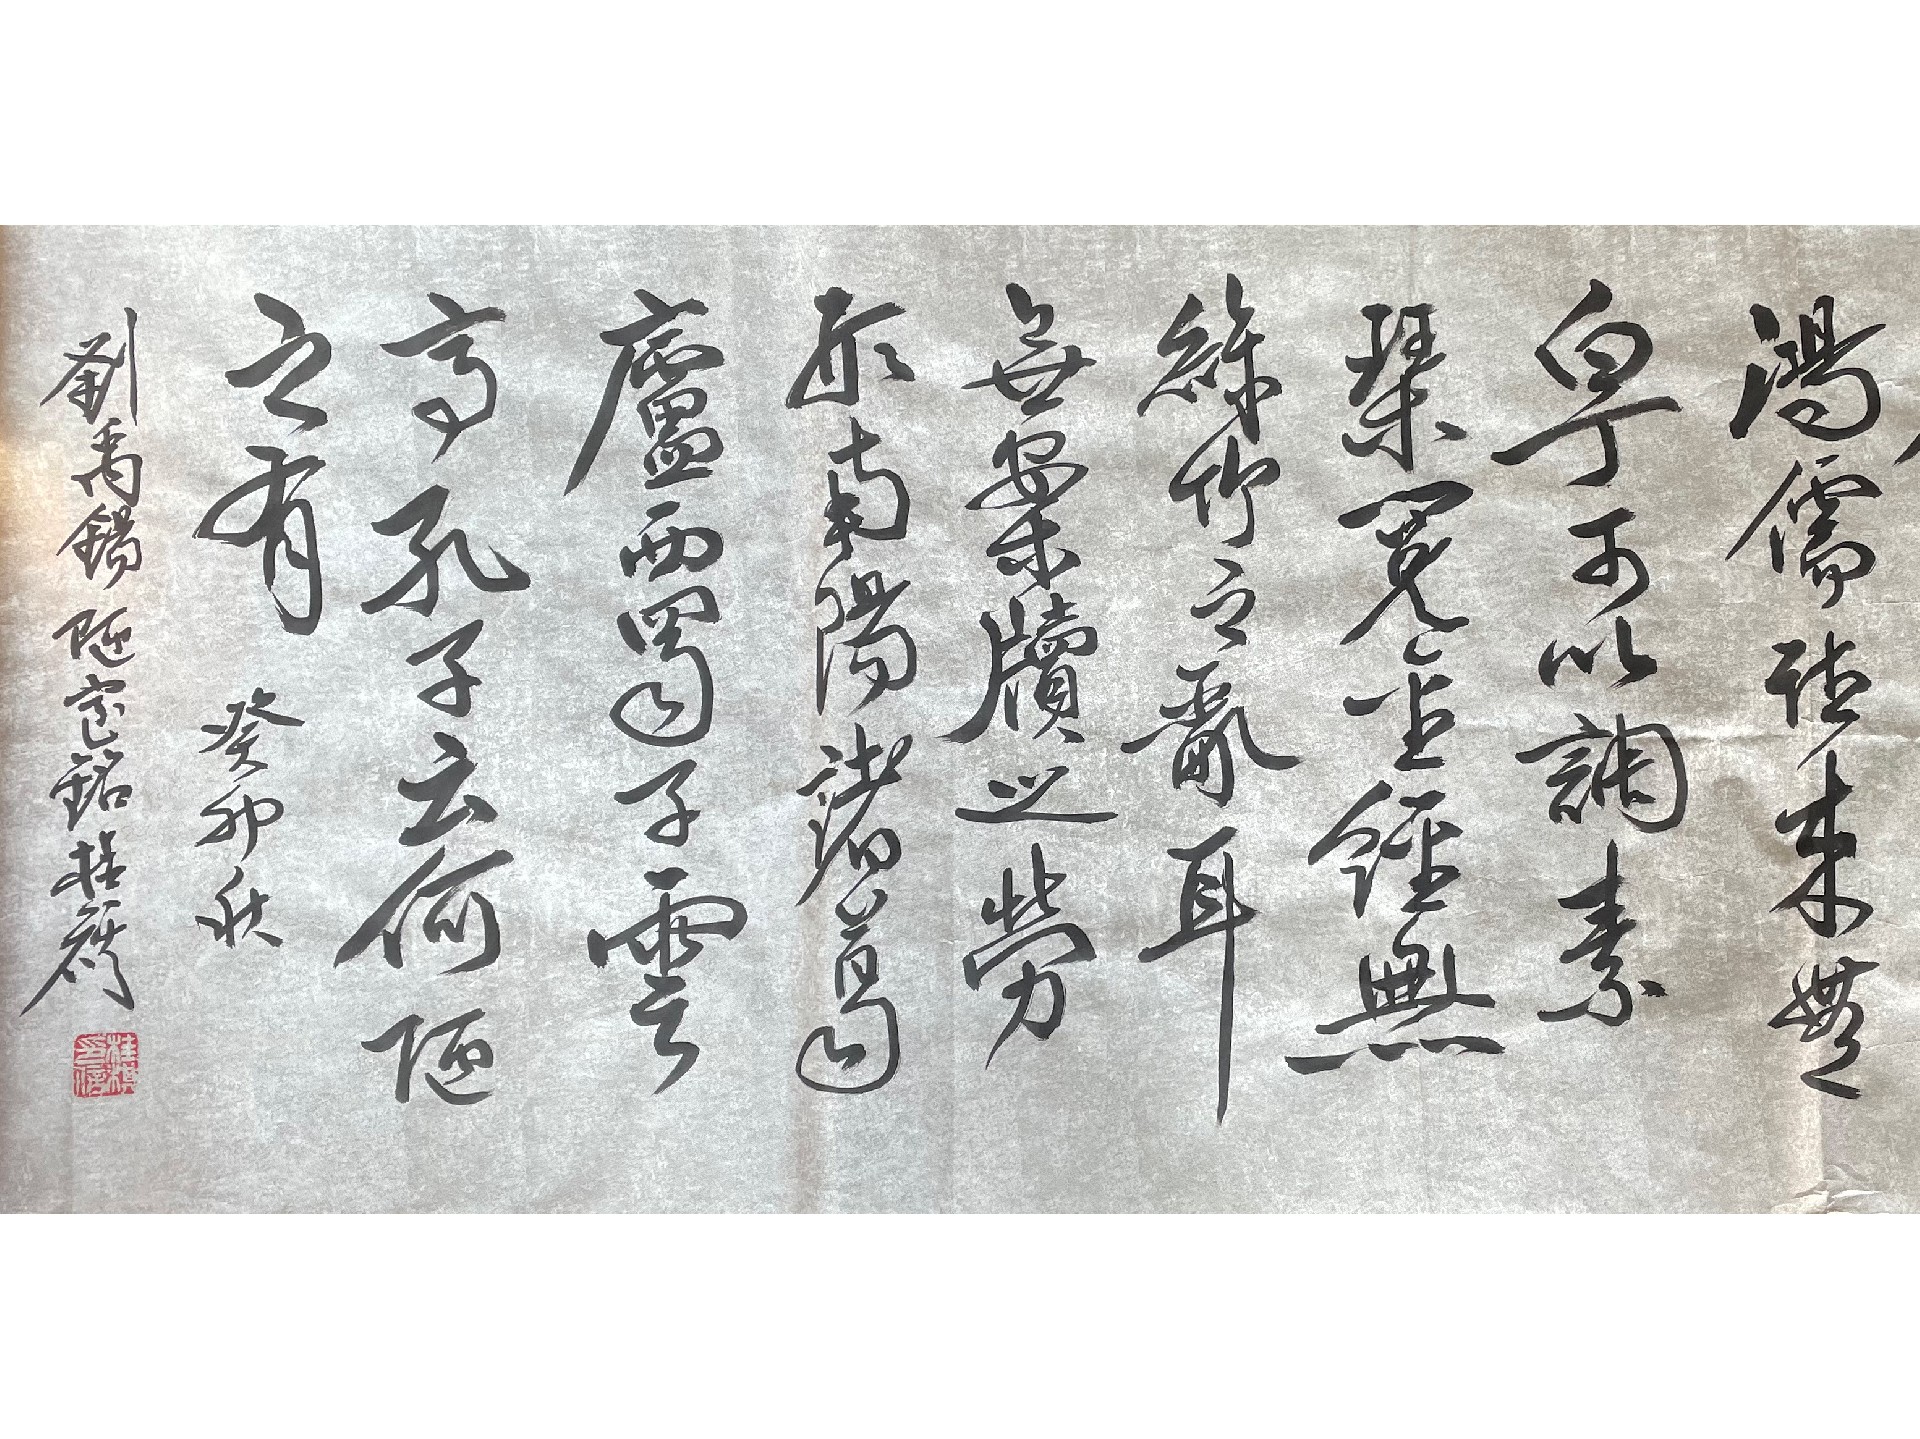 鴻儒往来無
白丁可以調素
琴閱金經無
絲竹之亂耳
無案牘之勞
形南陽諸葛
廬西蜀子雲
亭孔子云何陋
之有 癸卯秋
劉禹錫陋室銘桂祺
桂祺印信